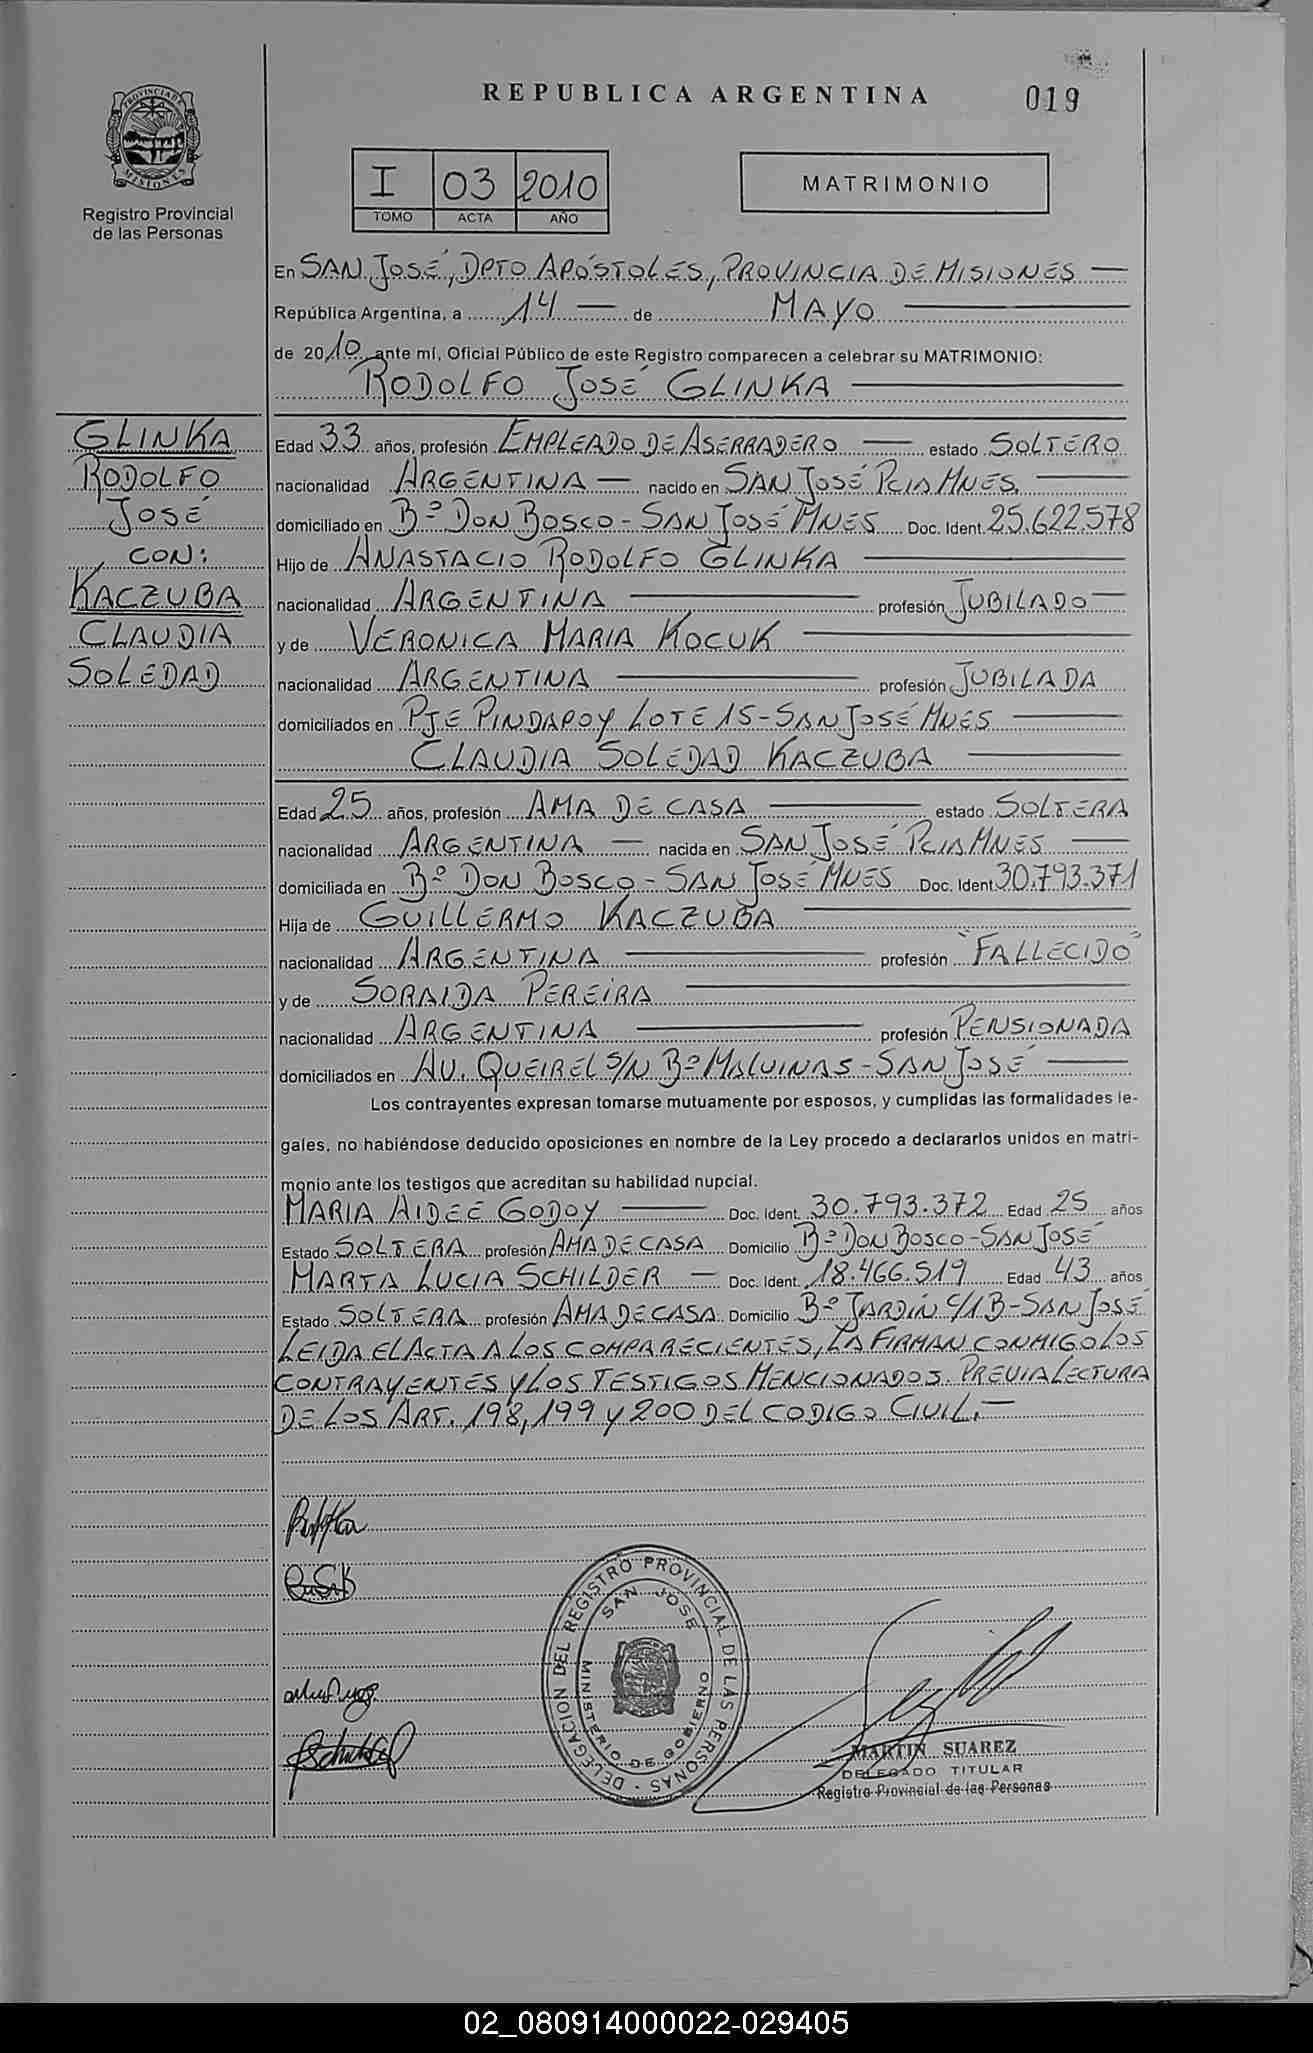 PROVINCIA DE
MISIONES
Registro Provincial
de las Personas
REPUBLICA ARGENTINA
019
I 03 2010
TOMO ACTA AÑO
MATRIMONIO
En SAN JOSÉ, DPTO APÓSTOLES, PROVINCIA DE MISIONES —
República Argentina, a 14 — de MAYO —
de 2010 ante mí, Oficial Público de este Registro comparecen a celebrar su MATRIMONIO:
RODOLFO JOSÉ GLINKA —
GLINKA
RODOLFO
JOSÉ
CON:
KACZUBA
CLAUDIA
SOLEDAD
Edad 33 años, profesión EMPLEADO DE ASERRADERO — estado SOLTERO
nacionalidad ARGENTINA — nacido en SAN JOSÉ PCIA MNES. —
domiciliado en Bº DON BOSCO - SAN JOSÉ MNES Doc. Ident. 25.622.578
Hijo de ANASTACIO RODOLFO GLINKA —
nacionalidad ARGENTINA — profesión JUBILADO —
y de VERONICA MARIA KOCUK —
nacionalidad ARGENTINA — profesión JUBILADA
domiciliados en PJE PINDAPOY LOTE 15 - SAN JOSÉ MNES —
CLAUDIA SOLEDAD KACZUBA —
Edad 25 años, profesión AMA DE CASA — estado SOLTERA
nacionalidad ARGENTINA — nacida en SAN JOSÉ PCIA MNES —
domiciliada en Bº DON BOSCO - SAN JOSÉ MNES Doc. Ident. 30.793.371
Hija de GUILLERMO KACZUBA —
nacionalidad ARGENTINA — profesión "FALLECIDO"
y de SORAIDA PEREIRA —
nacionalidad ARGENTINA — profesión PENSIONADA
domiciliados en AV. QUEIREL S/N Bº MALVINAS - SAN JOSÉ —
Los contrayentes expresan tomarse mutuamente por esposos, y cumplidas las formalidades le-
gales, no habiéndose deducido oposiciones en nombre de la Ley procedo a declararlos unidos en matri-
monio ante los testigos que acreditan su habilidad nupcial.
MARIA AIDEE GODOY — Doc. Ident. 30.793.372 Edad 25 años
Estado SOLTERA profesión AMA DE CASA Domicilio Bº DON BOSCO - SAN JOSÉ
MARTA LUCIA SCHILDER — Doc. Ident. 18.466.519 Edad 43 años
Estado SOLTERA profesión AMA DE CASA Domicilio Bº JARDÍN C/1 B - SAN JOSÉ
LEIDA EL ACTA A LOS COMPARECIENTES, LA FIRMAN CONMIGO LOS
CONTRAYENTES Y LOS TESTIGOS MENCIONADOS. PREVIA LECTURA
DE LOS ART. 198, 199 Y 200 DEL CODIGO CIVIL. —
DELEGACION DEL REGISTRO PROVINCIAL DE LAS PERSONAS
SAN JOSE
MINISTERIO DE GOBIERNO
MARTIN SUAREZ
DELEGADO TITULAR
Registro Provincial de las Personas
02_080914000022-029405